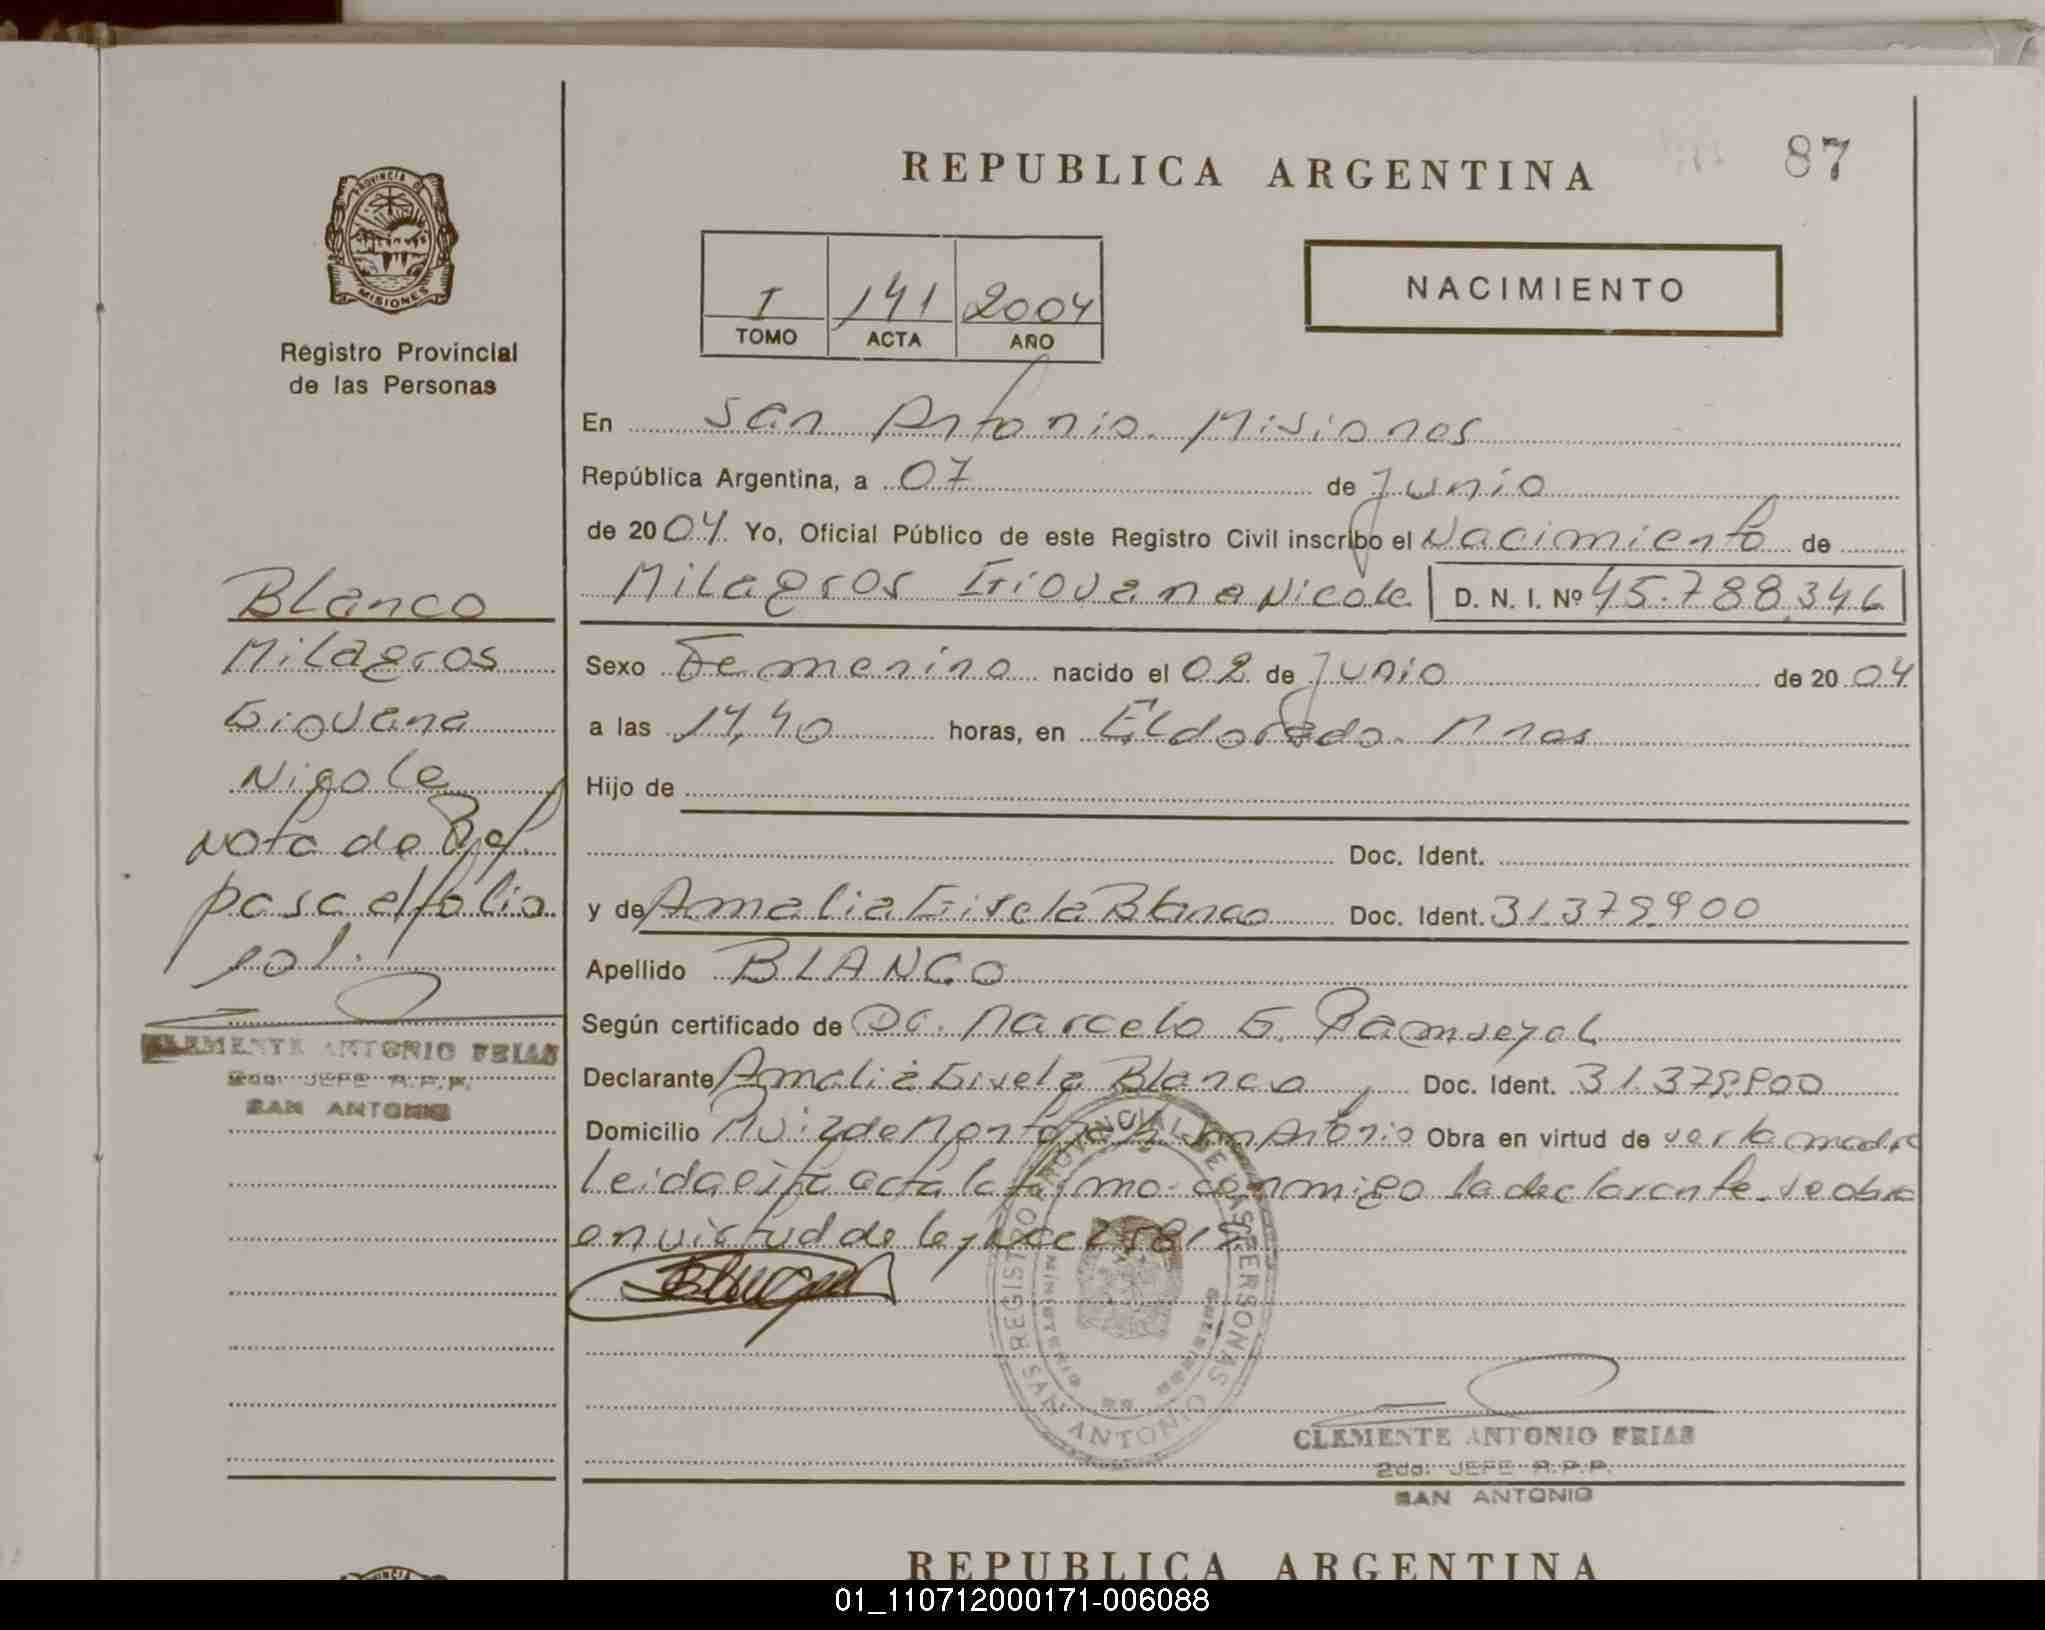 REPUBLICA ARGENTINA
87
PROVINCIA DE
MISIONES
Registro Provincial
de las Personas
I 141 2004
TOMO ACTA AÑO
NACIMIENTO
En San Antonio. Misiones
República Argentina, a 07 de Junio
de 2004 Yo, Oficial Público de este Registro Civil inscribo el Nacimiento de
Milagros Giovana Nicole D. N. I. Nº 45.788.346
Blanco
Milagros
Giovana
Nicole
Nota de Ref.
pasa al folio
Sexo Femenino nacido el 02 de Junio de 2004
a las 14,40 horas, en Eldorado. Mnes
Hijo de
Doc. Ident.
y de Amalia Gisela Blanco Doc. Ident. 31.379.900
Apellido BLANCO
Según certificado de Dr. Marcelo G.
Declarante Amalia Gisela Blanco Doc. Ident. 31.379.900
Domicilio Ruiz de Montoya San Antonio Obra en virtud de ser la madre
Leida esta acta la firmo conmigo la declarante. se obra
en virtud de ley
CLEMENTE ANTONIO FRIAS
2do. JEFE R.P.P.
SAN ANTONIO
REGISTRO PROVINCIAL DE LAS PERSONAS
MINISTERIO GOBIERNO
SAN ANTONIO
CLEMENTE ANTONIO FRIAS
2do. JEFE R.P.P.
SAN ANTONIO
REPUBLICA ARGENTINA
01_110712000171-006088